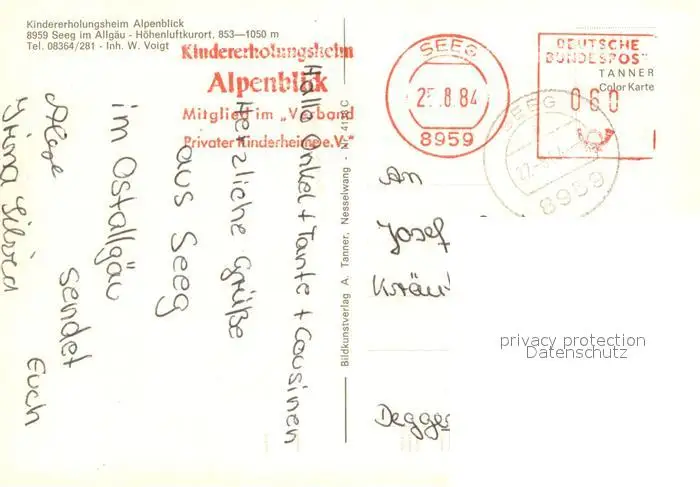 Kindererholungsheim Alpenblick
8959 Seeg im Allgäu - Höhenluftkurort, 853—1050 m
Tel. 08364/281 - Inh. W. Voigt
Kindererholungsheim
Alpenblick
Mitglied im „Verband
Privater Kinderheime e.V."
Hallo Onkel + Tante + Cousinen
Herzliche Grüße
aus Seeg
im Ostallgäu
sendet Euch
Bildkunstverlag A. Tanner, Nesselwang - Nr.
SEEG
8.84
8959
DEUTSCHE
BUNDESPOS
TANNER
Color Karte
060
SEEG
8959
An
Josef
Kräu
Degge
privacy protection
Datenschutz